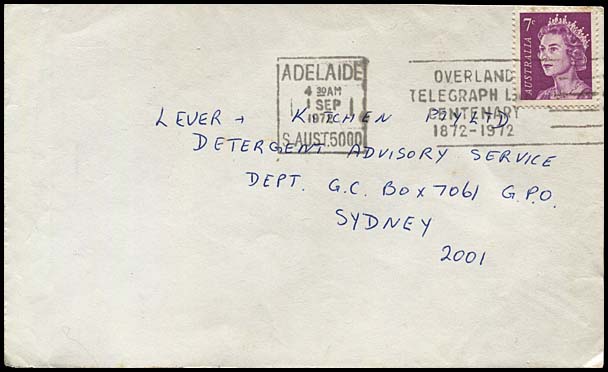 7c
AUSTRALIA
ADELAIDE
4 30AM
1 SEP
1972
S.AUST.5000
OVERLAND
TELEGRAPH L
CENTENARY
1872-1972
LEVER + KITCHEN PTY LTD
DETERGENT ADVISORY SERVICE
DEPT. G.C. BOX 7061 G.P.O.
SYDNEY
2001